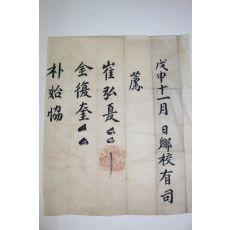 戊申十一月 日鄕校有司
薦
崔弘夏
金復奎
朴始協